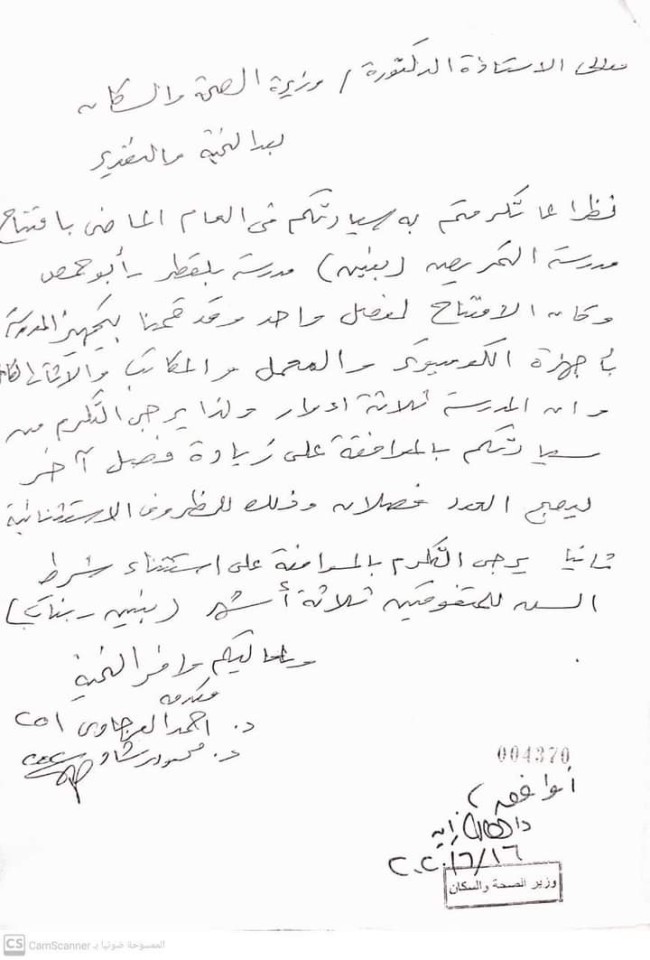 معالى الاستاذة الدكتورة / وزيرة الصحة والسكان
بعد التحية والتقدير
نظرا لما تكرمتم به سيادتكم فى العام الماضى بافتتاح
مدرسة التمريض (بنين) مدرسة بلقطر - أبو حمص
وكان الافتتاح لفصل واحد وقد قمنا بتجهيز المدرسة
بأجهزة الكومبيوتر والمعمل والمكاتب والأثاث
وان المدرسة ثلاثة ادوار ولذا يرجى التكرم من
سيادتكم بالموافقة على زيادة فصل آخر
ليصبح العدد فصلان وذلك للظروف الاستثنائية
ثانيا يرجى التكرم بالموافقة على استثناء شرط
السن للمتفوقين ثلاثة أشهر (بنين - بنات)
ولمعاليكم وافر التحية
مقدمه
د. احمد العرجاوى
د. محمود رشاد
004370
أوافق
د/ هالة زايد
٢٠٢٠/٦/١٦
وزير الصحة والسكان
CS CamScanner الممسوحة ضوئيا بـ